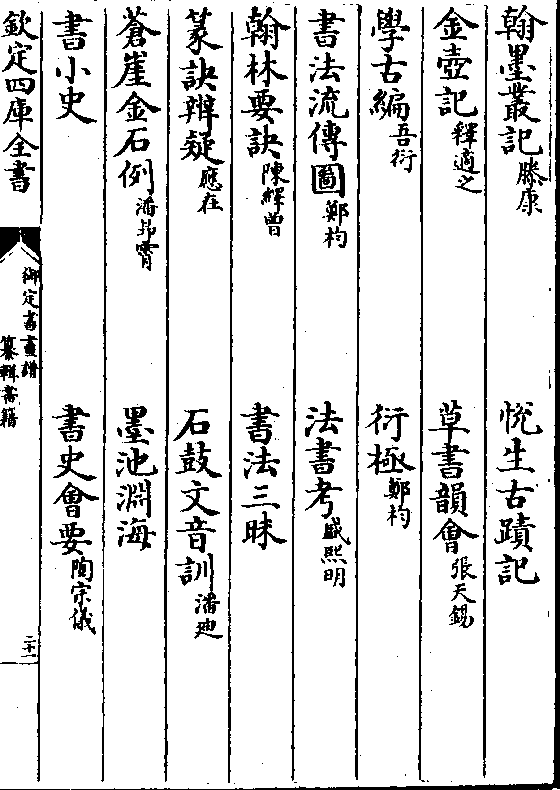 翰墨叢記滕康　悅生古蹟記
金壺記釋適之　草書韻會張天錫
學古編吾衍　衍極鄭杓
書法流傳圖鄭杓　法書考盛熙明
翰林要訣陳繹曾　書法三昧
篆訣辨疑應在　石鼓文音訓潘迪
蒼崖金石例潘昻霄　墨池淵海
書小史　書史會要陶宗儀
欽定四庫全書　御定書畫譜　纂輯書籍　二十一